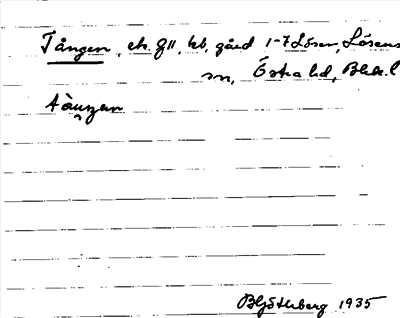 Tången, ek. fll, kb, gård 1-7 Lösen, Lösens
sn, Östra hd, Blek. l
tåŋŋen
B Hjötterberg 1935